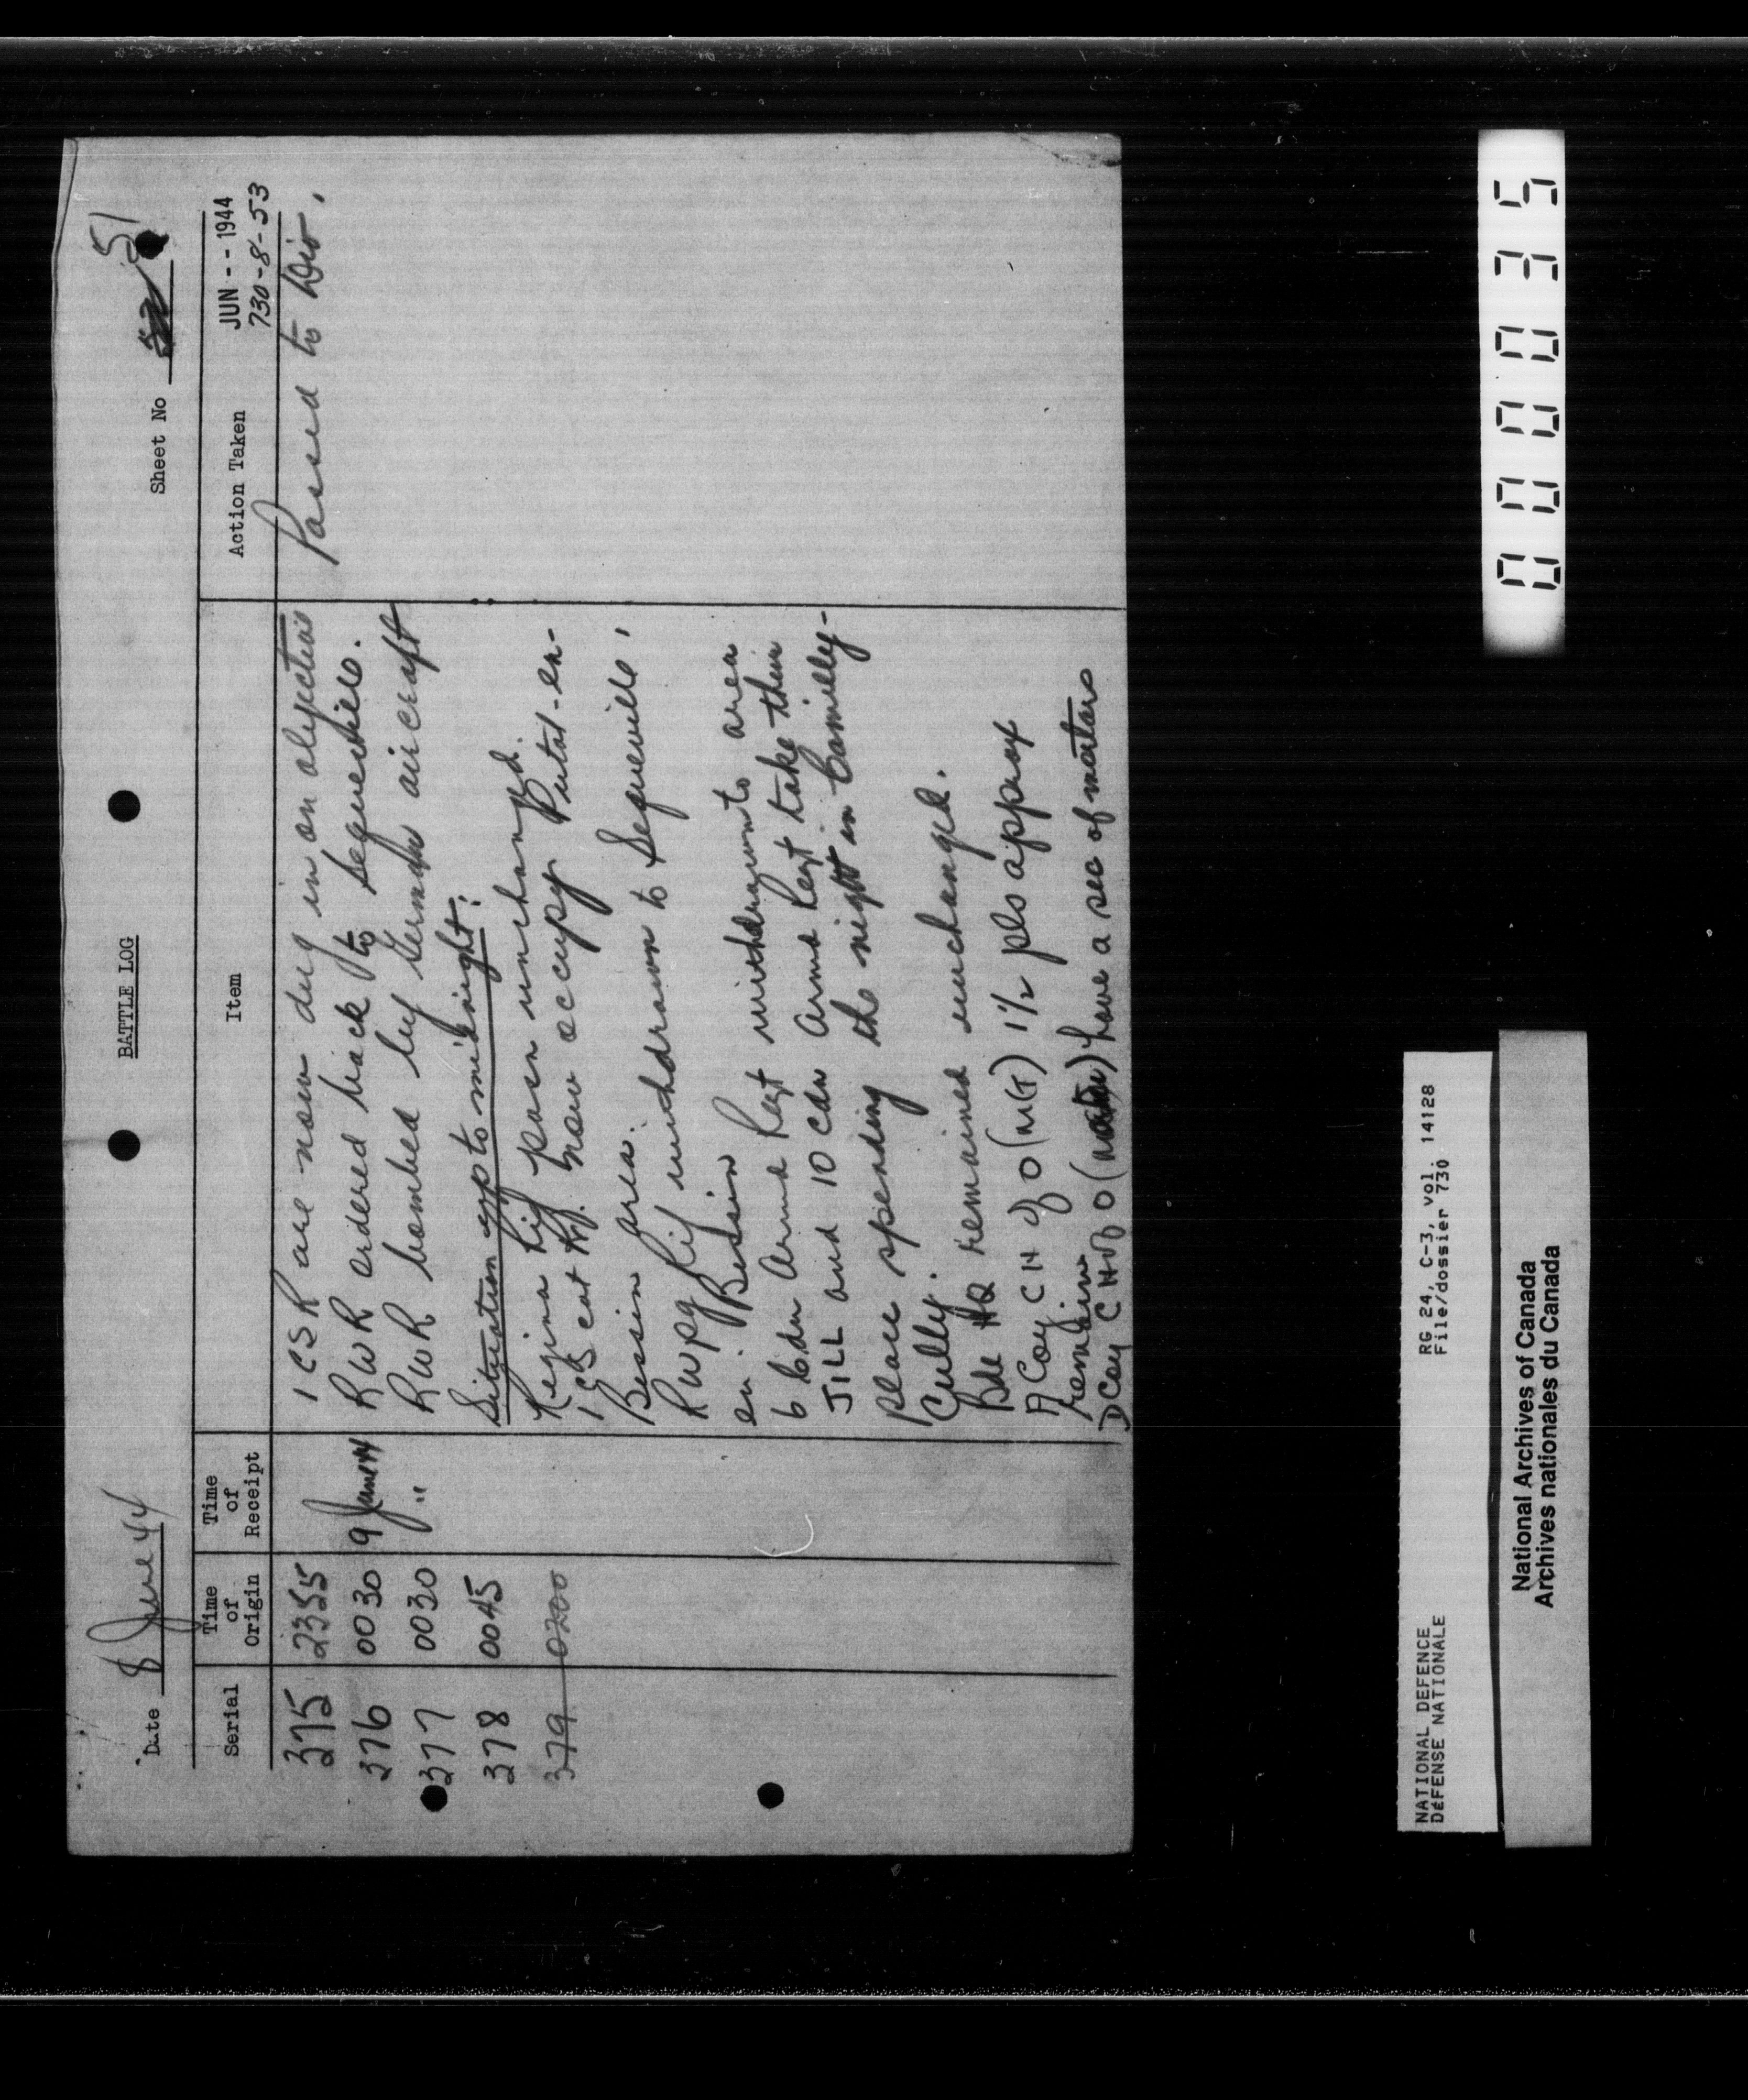 Date 8 June 44
BATTLE LOG
Sheet No 51
JUN -- 1944
730-8-53
Serial
Time of Origin
Time of Receipt
Item
Action Taken
375 2355 1 CSR are now dug in on objectives Passed to Div.
376 0030 9 June 44 RWR ordered back to Sequeville.
377 0030 " RWR bombed by German aircraft
378 0045 Situation up to midnight:
379 0200
Regina Rif posn unchanged.
1 CS cot R. now occupy Putot-en-
Bessin area.
R Wpg Rif withdrawn to Sequeville,
en. Bessin
6 Cdn Armd Regt withdrawn to area
JILL and 10 Cdn Armd Regt take their
place spending the night in Camilly-
Cully.
Bde HQ remained unchanged.
A Coy CH of O (MG) 1½ pls approx
remain
D Coy CH of O (mortar) have a sec of mortars
000035
NATIONAL DEFENCE
DÉFENSE NATIONALE
RG 24, C-3, vol. 14128
File/dossier 730
National Archives of Canada
Archives nationales du Canada